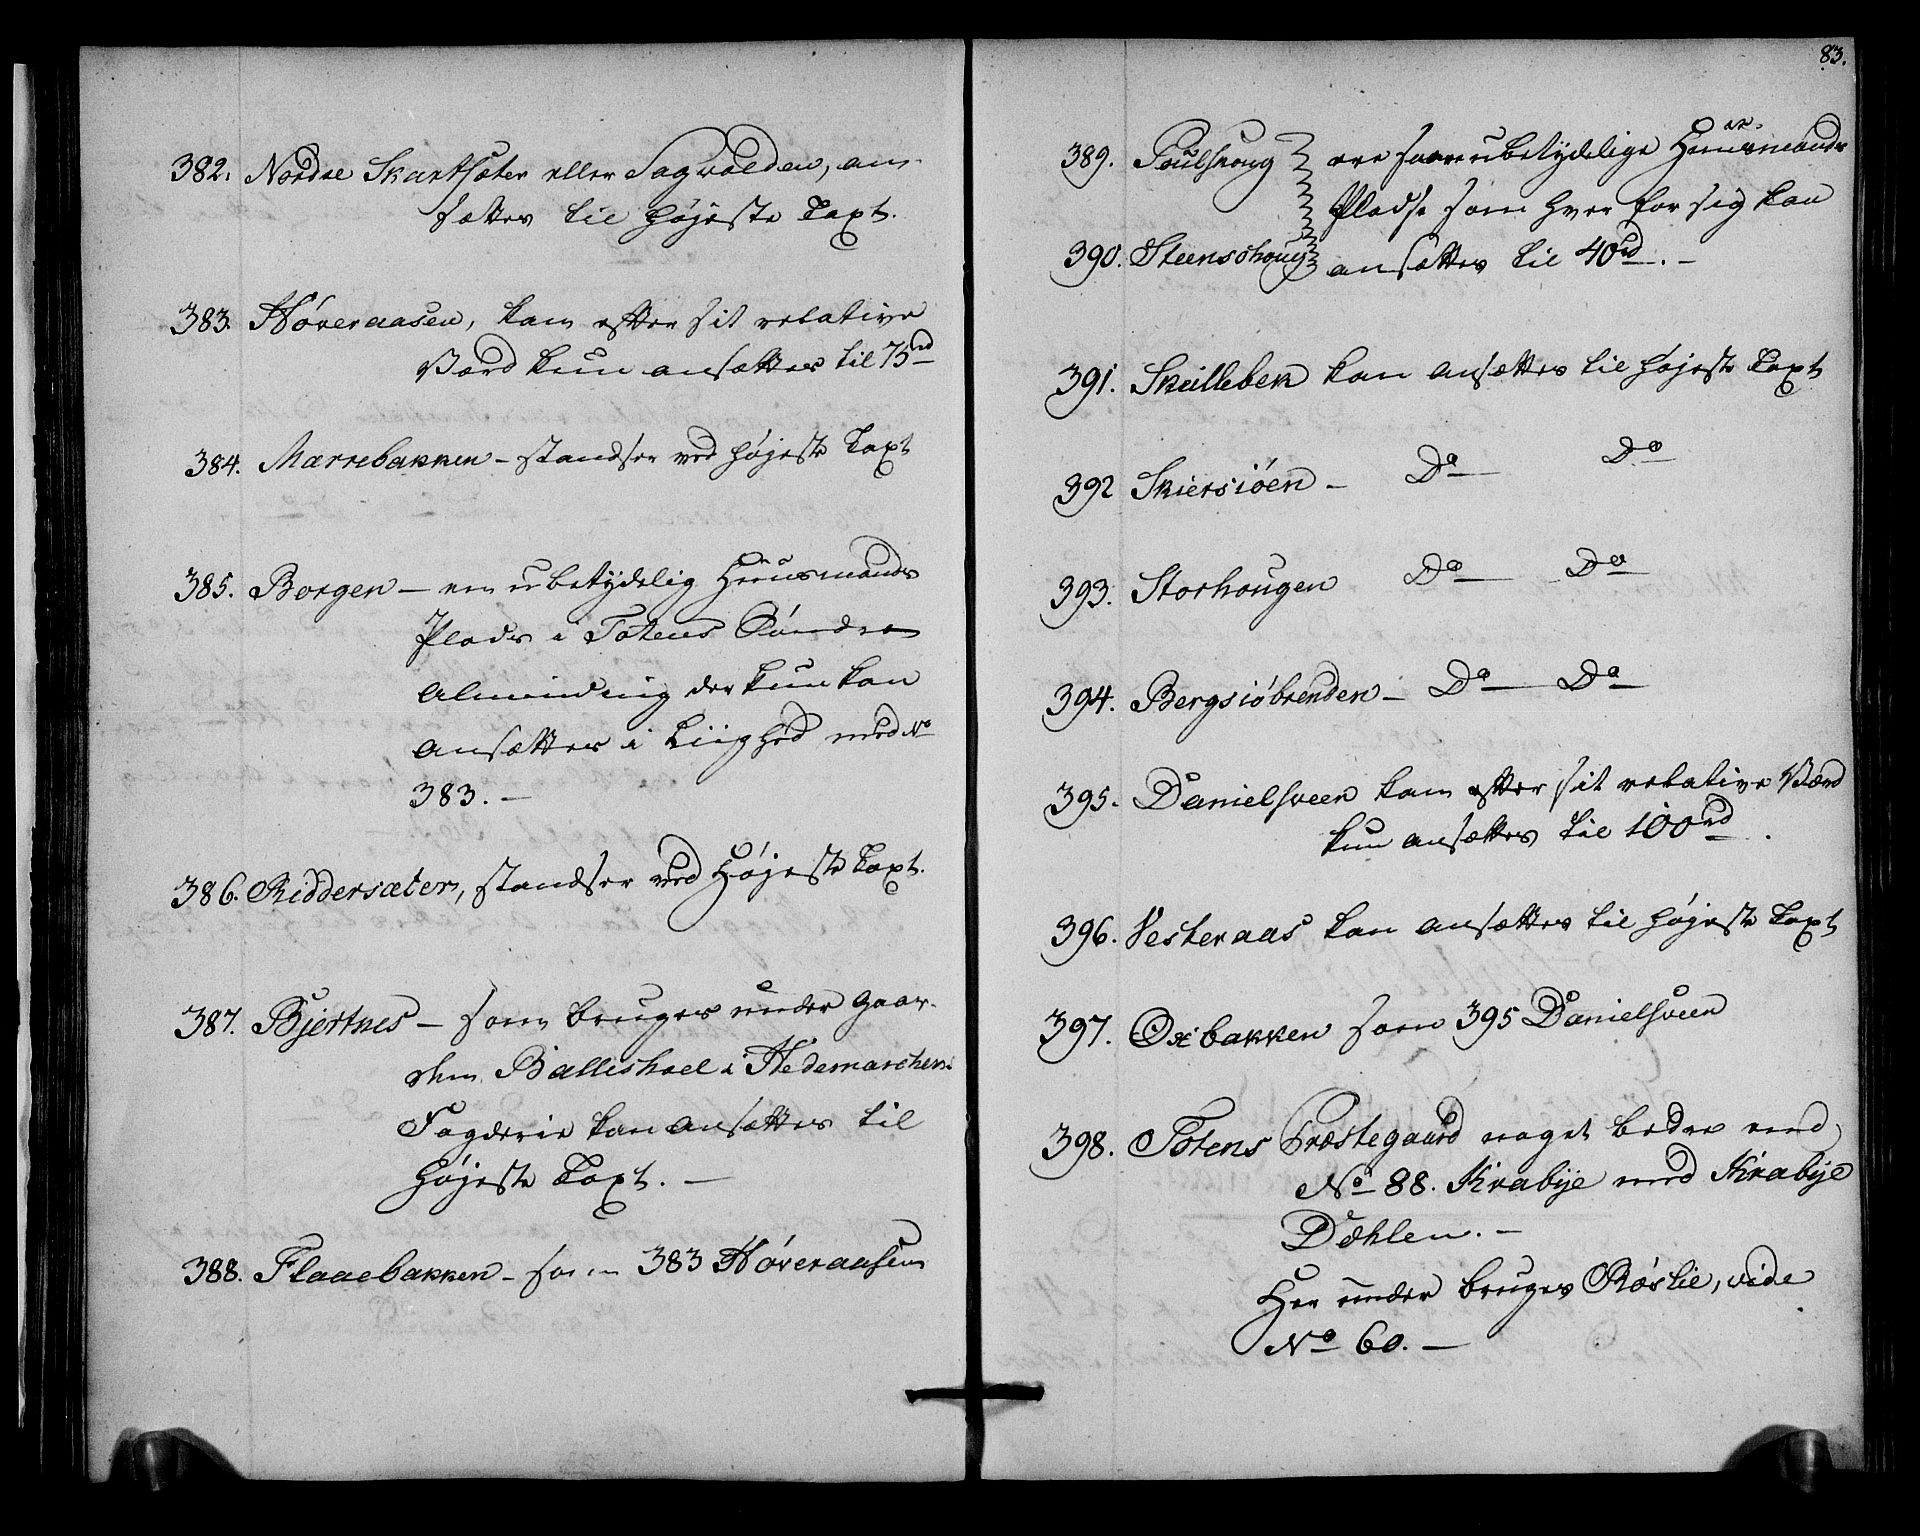 382. Nordre Skartsæter eller Sagvolden, an-
sættes til højeste Taxt.
383. Høveraasen, kan efter sit relative
Værd kun ansættes til 75rd
384. Marrebakken - standser ved højeste Taxt
385. Borgen - en ubetydelig Huusmands
Plads i Totens Søndre
Alminding der kun kan
ansættes i Liighed med No
383. -
386. Riddersæter, standser ved Højeste Taxt.
387. Bjertnes - som bruges under Gaar-
den Ballishoel i Hedemarchens
Fogderie kan ansættes til
højeste Taxt. -
388. Flaaebakken - som 383 Høveraasen
83.
389. Poulshoug ere saare ubetydelige Huusmands
Pladse som hver for sig kan
390. Steenshoug ansættes til 40rd. -
391. Skillebek kan ansættes til højeste Taxt
392 Skiersiöen - Do Do
393. Storhougen Do Do
394. Bergsiöbrenden - Do Do
395. Danielsveen kan efter sit relative Værd
kun ansættes til 100rd.
396. Vesteraas kan ansættes til højeste Taxt
397. Oxbakken som 395 Danielsveen
398. Totens Præstegaard noget bedre end
No 88. Krabÿe med Krabÿe
Dæhlen. -
Her under bruges Röslie, vide
No 60. -